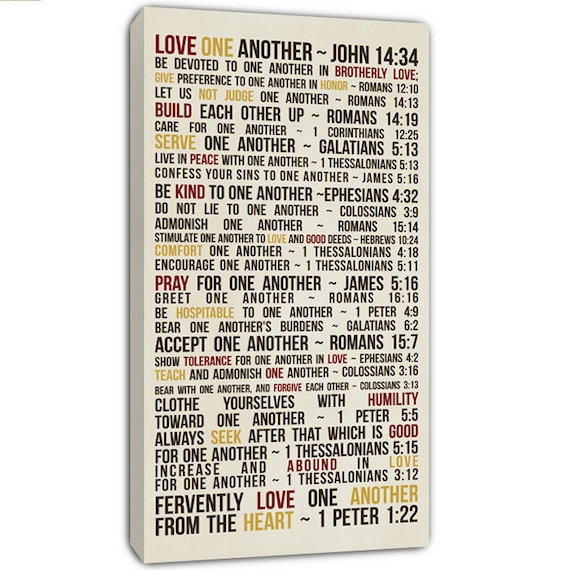 LOVE ONE ANOTHER ~ JOHN 14:34
BE DEVOTED TO ONE ANOTHER IN BROTHERLY LOVE;
GIVE PREFERENCE TO ONE ANOTHER IN HONOR ~ ROMANS 12:10
LET US NOT JUDGE ONE ANOTHER ~ ROMANS 14:13
BUILD EACH OTHER UP ~ ROMANS 14:19
CARE FOR ONE ANOTHER ~ 1 CORINTHIANS 12:25
SERVE ONE ANOTHER ~ GALATIANS 5:13
LIVE IN PEACE WITH ONE ANOTHER ~ 1 THESSALONIANS 5:13
CONFESS YOUR SINS TO ONE ANOTHER ~ JAMES 5:16
BE KIND TO ONE ANOTHER ~EPHESIANS 4:32
DO NOT LIE TO ONE ANOTHER ~ COLOSSIANS 3:9
ADMONISH ONE ANOTHER ~ ROMANS 15:14
STIMULATE ONE ANOTHER TO LOVE AND GOOD DEEDS ~ HEBREWS 10:24
COMFORT ONE ANOTHER ~ 1 THESSALONIANS 4:18
ENCOURAGE ONE ANOTHER ~ 1 THESSALONIANS 5:11
PRAY FOR ONE ANOTHER ~ JAMES 5:16
GREET ONE ANOTHER ~ ROMANS 16:16
BE HOSPITABLE TO ONE ANOTHER ~ 1 PETER 4:9
BEAR ONE ANOTHER'S BURDENS ~ GALATIANS 6:2
ACCEPT ONE ANOTHER ~ ROMANS 15:7
SHOW TOLERANCE FOR ONE ANOTHER IN LOVE ~ EPHESIANS 4:2
TEACH AND ADMONISH ONE ANOTHER ~ COLOSSIANS 3:16
BEAR WITH ONE ANOTHER, AND FORGIVE EACH OTHER ~ COLOSSIANS 3:13
CLOTHE YOURSELVES WITH HUMILITY
TOWARD ONE ANOTHER ~ 1 PETER 5:5
ALWAYS SEEK AFTER THAT WHICH IS GOOD
FOR ONE ANOTHER ~ 1 THESSALONIANS 5:15
INCREASE AND ABOUND IN LOVE
FOR ONE ANOTHER ~ 1 THESSALONIANS 3:12
FERVENTLY LOVE ONE ANOTHER
FROM THE HEART ~ 1 PETER 1:22